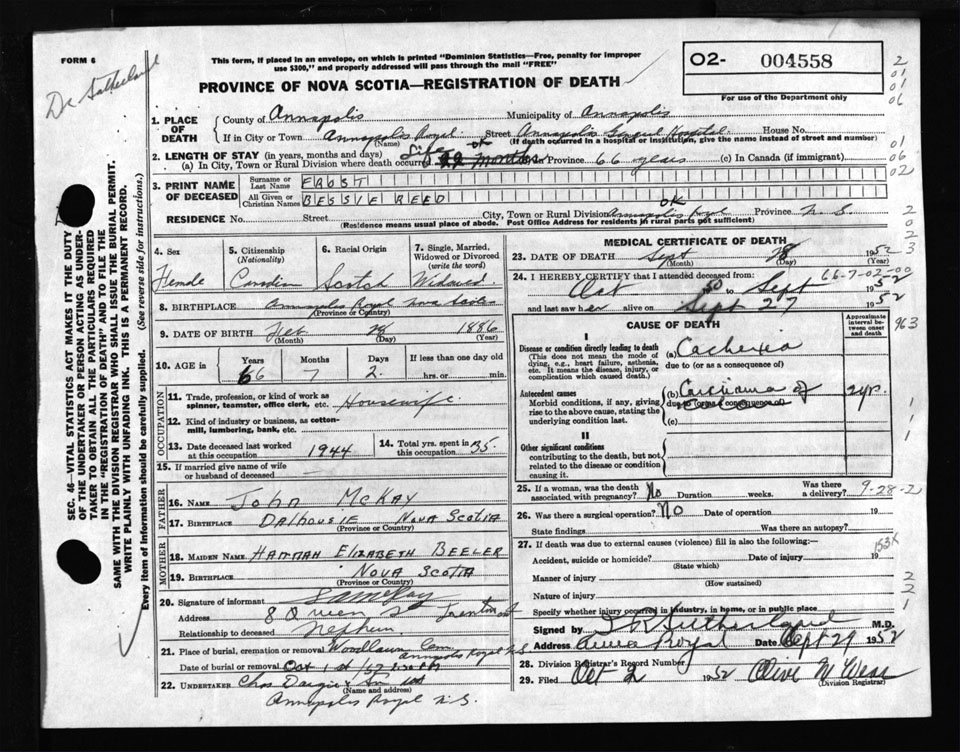 FORM 6
Dr Sutherland
This form, if placed in an envelope, on which is printed "Dominion Statistics—Free, penalty for improper
use $300," and properly addressed will pass through the mail "FREE"
PROVINCE OF NOVA SCOTIA—REGISTRATION OF DEATH
02- 004558
For use of the Department only
2
01
01
06
1. PLACE OF DEATH
County of Annapolis Municipality of Annapolis
If in City or Town Annapolis Royal Street Annapolis General Hospital House No.
(Name) (If death occurred in a hospital or institution, give the name instead of street and number)
2. LENGTH OF STAY (in years, months and days) Life ok
(a) In City, Town or Rural Division where death occurred 22 months in Province 66 years (c) In Canada (if immigrant)
01
06
02
3. PRINT NAME OF DECEASED
Surname or Last Name FROST
All Given or Christian Names BESSIE REED
ok
RESIDENCE No. Street City, Town or Rural Division Annapolis Royal Province N.S.
(Residence means usual place of abode. Post Office Address for residents in rural parts not sufficient)
2
0
2
3
4. Sex Female
5. Citizenship (Nationality) Canadian
6. Racial Origin Scotch
7. Single, Married, Widowed or Divorced (write the word) Widowed
8. BIRTHPLACE Annapolis Royal Nova Scotia
(Province or Country)
9. DATE OF BIRTH Feb 28 1886
(Month) (Day) (Year)
10. AGE in Years 66 Months 7 Days 2. If less than one day old
hrs. or min.
OCCUPATION
11. Trade, profession, or kind of work as
spinner, teamster, office clerk, etc. Housewife
12. Kind of industry or business, as cotton-
mill, lumbering, bank, etc.
13. Date deceased last worked
at this occupation 1944
14. Total yrs. spent in
this occupation 35
15. If married give name of wife
or husband of deceased
FATHER
16. NAME JOHN MCKAY
17. BIRTHPLACE DALHOUSIE NOVA SCOTIA
(Province or Country)
MOTHER
18. MAIDEN NAME HANNAH ELIZABETH BEELER
19. BIRTHPLACE NOVA SCOTIA
(Province or Country)
20. Signature of informant
Address 8 Queen St Trenton
Relationship to deceased Nephew
21. Place of burial, cremation or removal Woodlawn Cem
Annapolis Royal N.S.
Date of burial or removal Oct 1st /52 2:30 PM
22. UNDERTAKER Chas Dargie & Son
(Name and address)
Annapolis Royal N.S.
MEDICAL CERTIFICATE OF DEATH
23. DATE OF DEATH Sept 28 1952
(Month) (Day) (Year)
66-7-02-00
24. I HEREBY CERTIFY that I attended deceased from:
Oct 50 to Sept 1952
and last saw her alive on Sept 27 1952
CAUSE OF DEATH
Approximate interval between onset and death
963
I
Disease or condition directly leading to death
(This does not mean the mode of
dying, e.g., heart failure, asthenia,
etc. It means the disease, injury, or
complication which caused death.)
(a) Cachexia
due to (or as a consequence of)
Antecedent causes
Morbid conditions, if any, giving
rise to the above cause, stating the
underlying condition last.
(b) Carcinoma of 2 yr.
due to (or as a consequence of)
(c)
1
1
II
Other significant conditions
contributing to the death, but not
related to the disease or condition
causing it.
25. If a woman, was the death
associated with pregnancy? No Duration weeks. Was there
a delivery? 9-28-2
26. Was there a surgical operation? No Date of operation 19
State findings Was there an autopsy?
27. If death was due to external causes (violence) fill in also the following:—
Accident, suicide or homicide? Date of injury 19
(State which)
153X
Manner of injury
(How sustained)
Nature of injury
Specify whether injury occurred in industry, in home, or in public place
2
2
1
Signed by Sutherland M.D.
Address Anna Royal Date Sept 29 1952
28. Division Registrar's Record Number
29. Filed Oct 2 1952 Olive W West
(Division Registrar)
SEC. 46—VITAL STATISTICS ACT MAKES IT THE DUTY
OF THE UNDERTAKER OR PERSON ACTING AS UNDER-
TAKER TO OBTAIN ALL THE PARTICULARS REQUIRED
IN THE "REGISTRATION OF DEATH" AND TO FILE THE
SAME WITH THE DIVISION REGISTRAR WHO SHALL ISSUE THE BURIAL PERMIT.
WRITE PLAINLY WITH UNFADING INK. THIS IS A PERMANENT RECORD.
Every item of information should be carefully supplied. (See reverse side for instructions.)